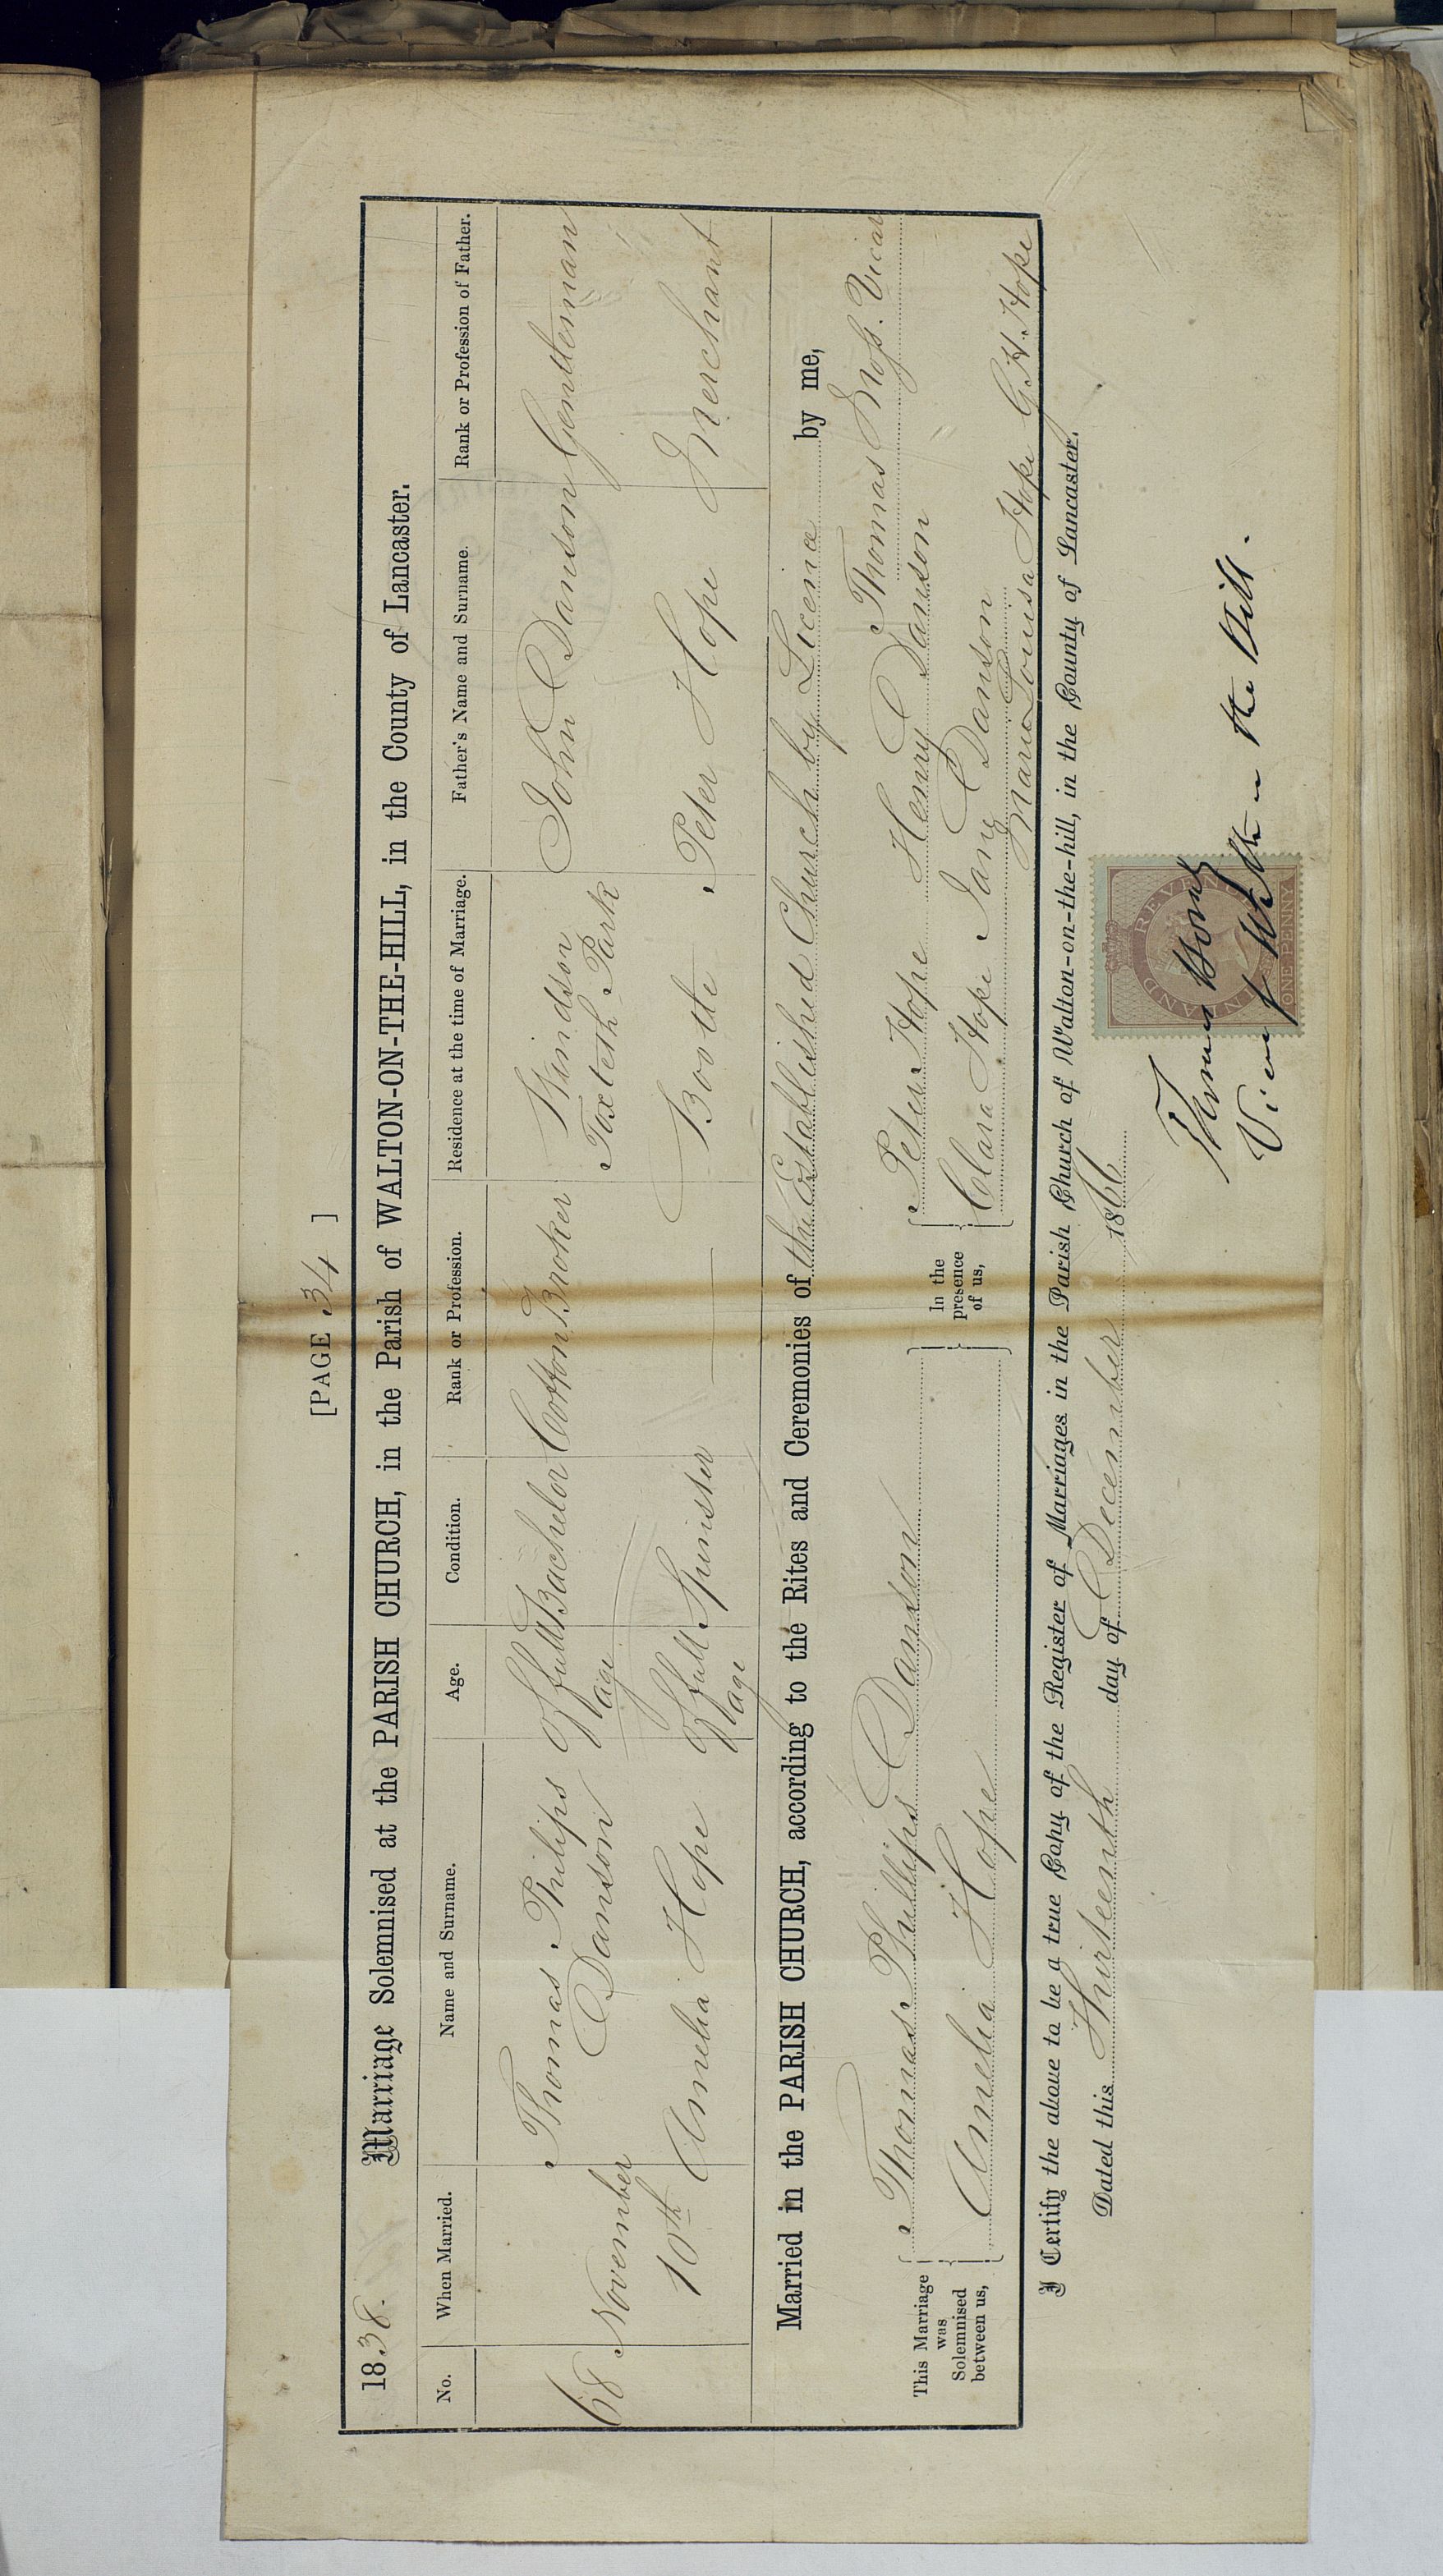 [PAGE 34 ]
1838. Marriage Solemnised at the PARISH CHURCH, in the Parish of WALTON-ON-THE-HILL, in the County of Lancaster.
No. When Married. Name and Surname. Age. Condition. Rank or Profession. Residence at the time of Marriage. Father's Name and Surname. Rank or Profession of Father.
68 November 10th
Thomas Philips Danson Of full age Bachelor Cotton Broker Windsor Toxteth Park John Danson Gentleman
Amelia Hope Of full age Spinster — Bootle Peter Hope Merchant
Married in the PARISH CHURCH, according to the Rites and Ceremonies of the Established Church by Licence by me,
Thomas Moss. Vicar
This Marriage was Solemnised between us,
Thomas Phillips Danson
Amelia Hope
In the presence of us,
Peter Hope Henry Danson
Clara Hope Jane Danson
Maria Louisa Hope G. H. Hope
I Certify the above to be a true Copy of the Register of Marriages in the Parish Church of Walton-on-the-hill, in the County of Lancaster.
Dated this Thirteenth day of December 1866
INLAND REVENUE
ONE PENNY
Thomas
Vicar of Walton on the Hill.